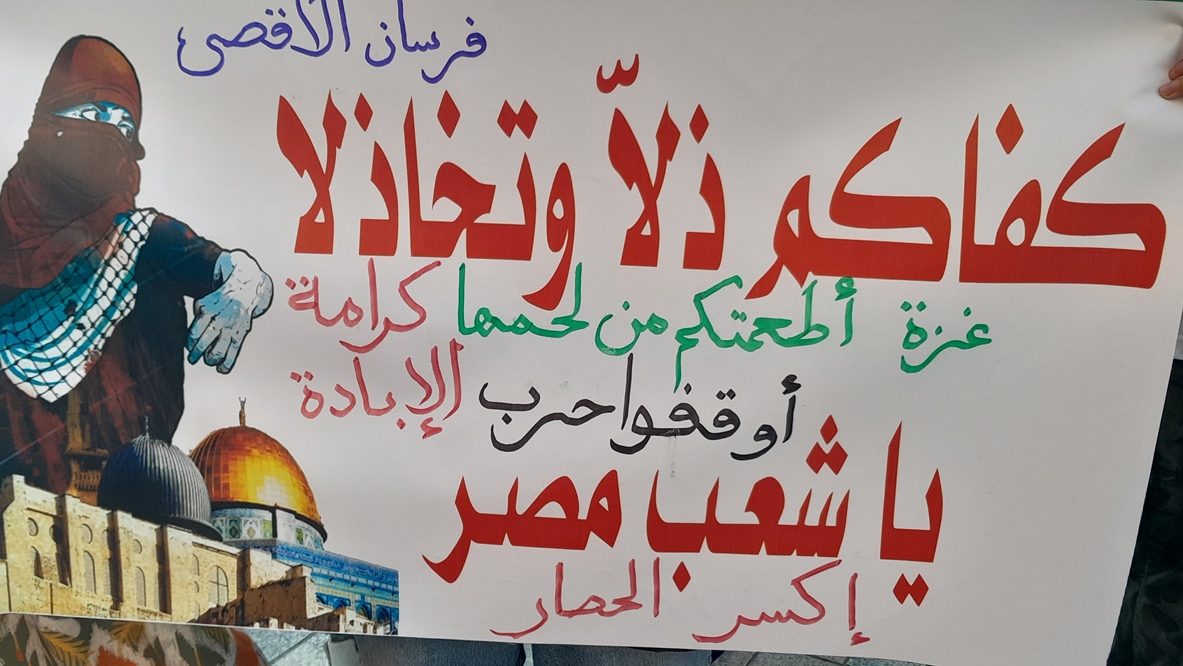 فرسان الأقصى
كفاكم ذلاّ وتخاذلا
غزة أطعمتكم من لحمها كرامة
أوقفوا حرب الإبادة
يا شعب مصر
إكسر الحصار